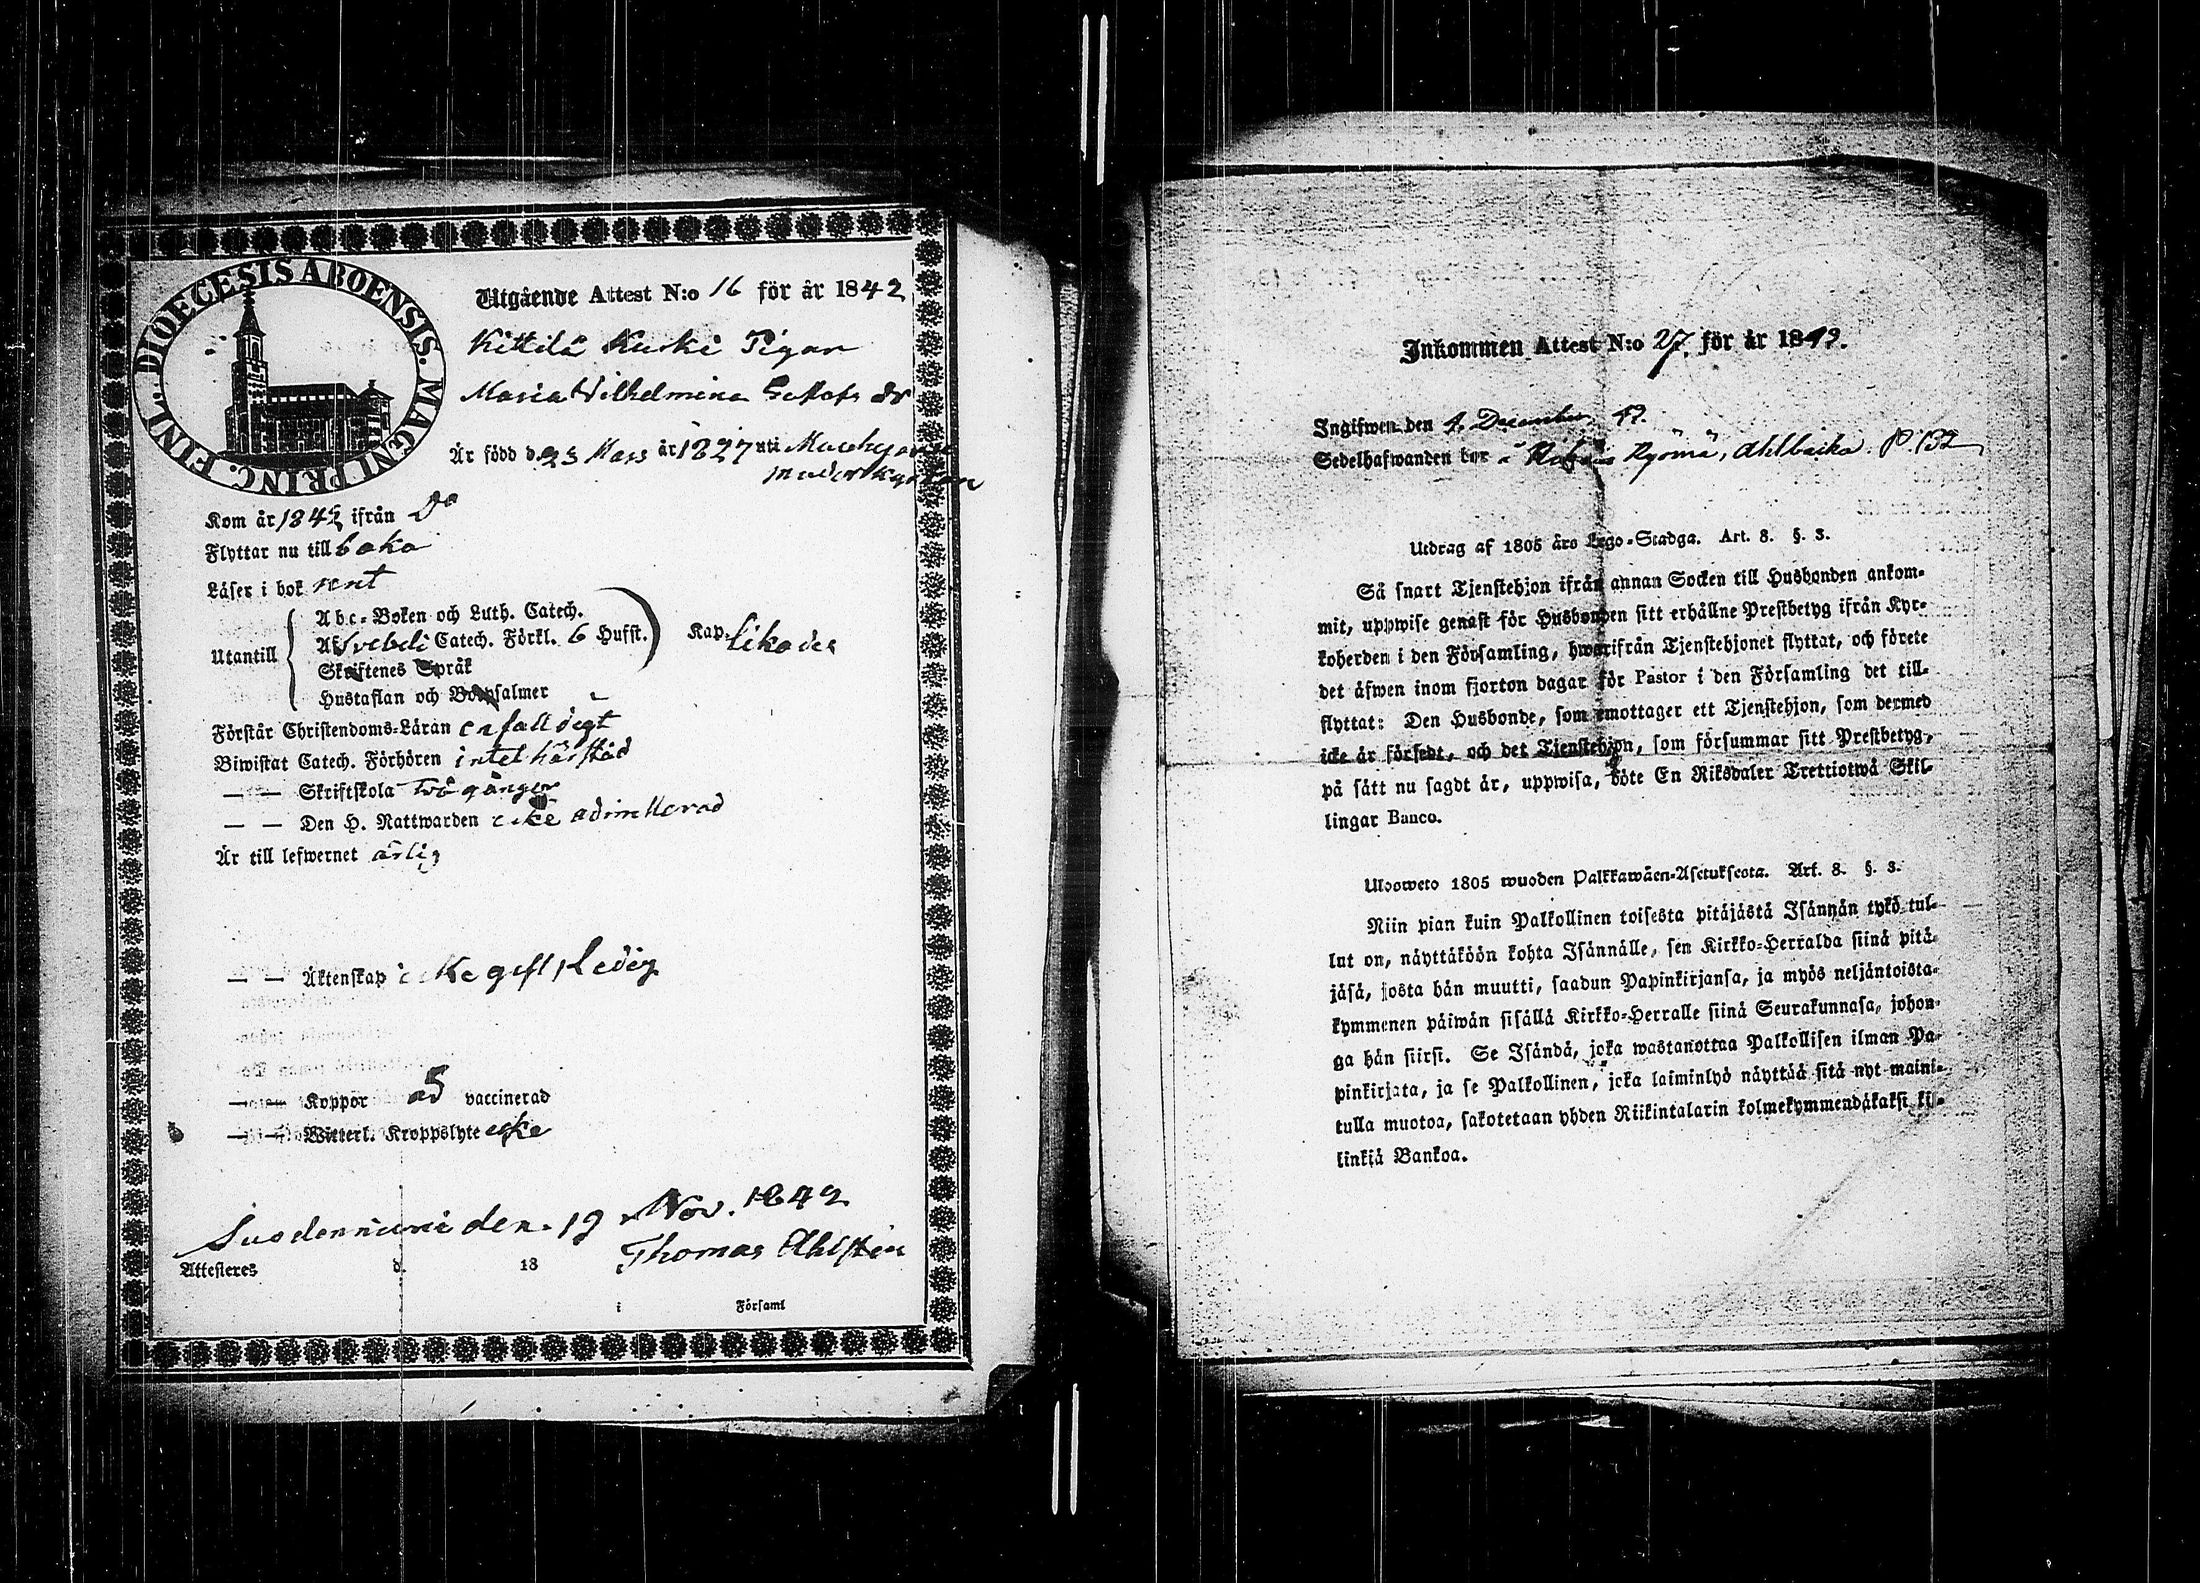 FINL. DIOECESIS ABOENSIS. MAGNI PRINC.
Utgående Attest N:o 16 för år 1842
Kittilä Kuski Pigan
Maria Wilhelmina Gustafs dr
Är född d. 23 Mars år 1827 uti
moderkyrkan
Kom år 1842 ifrån Do
Flyttar nu till baka
Läser i bok rent
Utantill
Abc-Boken och Luth. Catech.
Af Svebeli Catech. Förkl. 6 Hufst.
Skriftenes Språk
Hustaflan och Botpsalmer
Kap. likaded
Förstår Christendoms-Läran enfalldigt
Biwistat Catech. Förhören intet härstäd
— — Skriftskola två gånger
— — Den H. Nattwarden icke admitterad
Är till lefwernet ärlig
— — Äktenskap icke gift, Ledig
— — Koppor vaccinerad
— — Witterl. Kroppslyte icke
Suodenniemi den 19 Nov. 1842
Thomas Ahlstén
Attesteres d. 18
i Förseml
Inkommen Attest N:o 27. för år 1842.
Ingifwen den 4. December 42.
Sedelhafwanden bor i Ryömä, Ahlbacka. P. 132
Utdrag af 1805 års Lego-Stadga. Art. 8. §. 3.
Så snart Tjenstehjon ifrån annan Socken till Husbonden ankom-
mit, uppwise genast för Husbonden sitt erhållne Prestbetyg ifrån Kyr-
koherden i den Församling, hwarifrån Tjenstehjonet flyttat, och förete
det äfwen inom fjorton dagar för Pastor i den Församling det till-
flyttat: Den Husbonde, som emottager ett Tjenstehjon, som dermed
icke är försedt, och det Tjenstehjon, som försummar sitt Prestbetyg,
på sätt nu sagdt är, uppwisa, böte En Riksdaler Trettiotwå Skil-
lingar Banco.
Ulosweto 1805 wuoden Palkkawäen-Asetuksesta. Art. 8. §. 3.
Niin pian kuin Palkollinen toisesta pitäjästä Isännän tykö tul-
lut on, näyttäköön kohta Isännälle, sen Kirkko-Herralda siinä pitä-
jäsä, josta hän muutti, saadun Papinkirjansa, ja myös neljäntoista-
kymmenen päiwän sisällä Kirkko-Herralle siinä Seurakunnasa, johon-
ga hän siirsi. Se Isändä, joka wastanottaa Palkollisen ilman Pa-
pinkirjata, ja se Palkollinen, joka laiminlyö näyttää sitä nyt maini-
tulla muotoa, sakotetaan yhden Riikintalarin kolmekymmendäkaksi kil-
linkiä Bankoa.